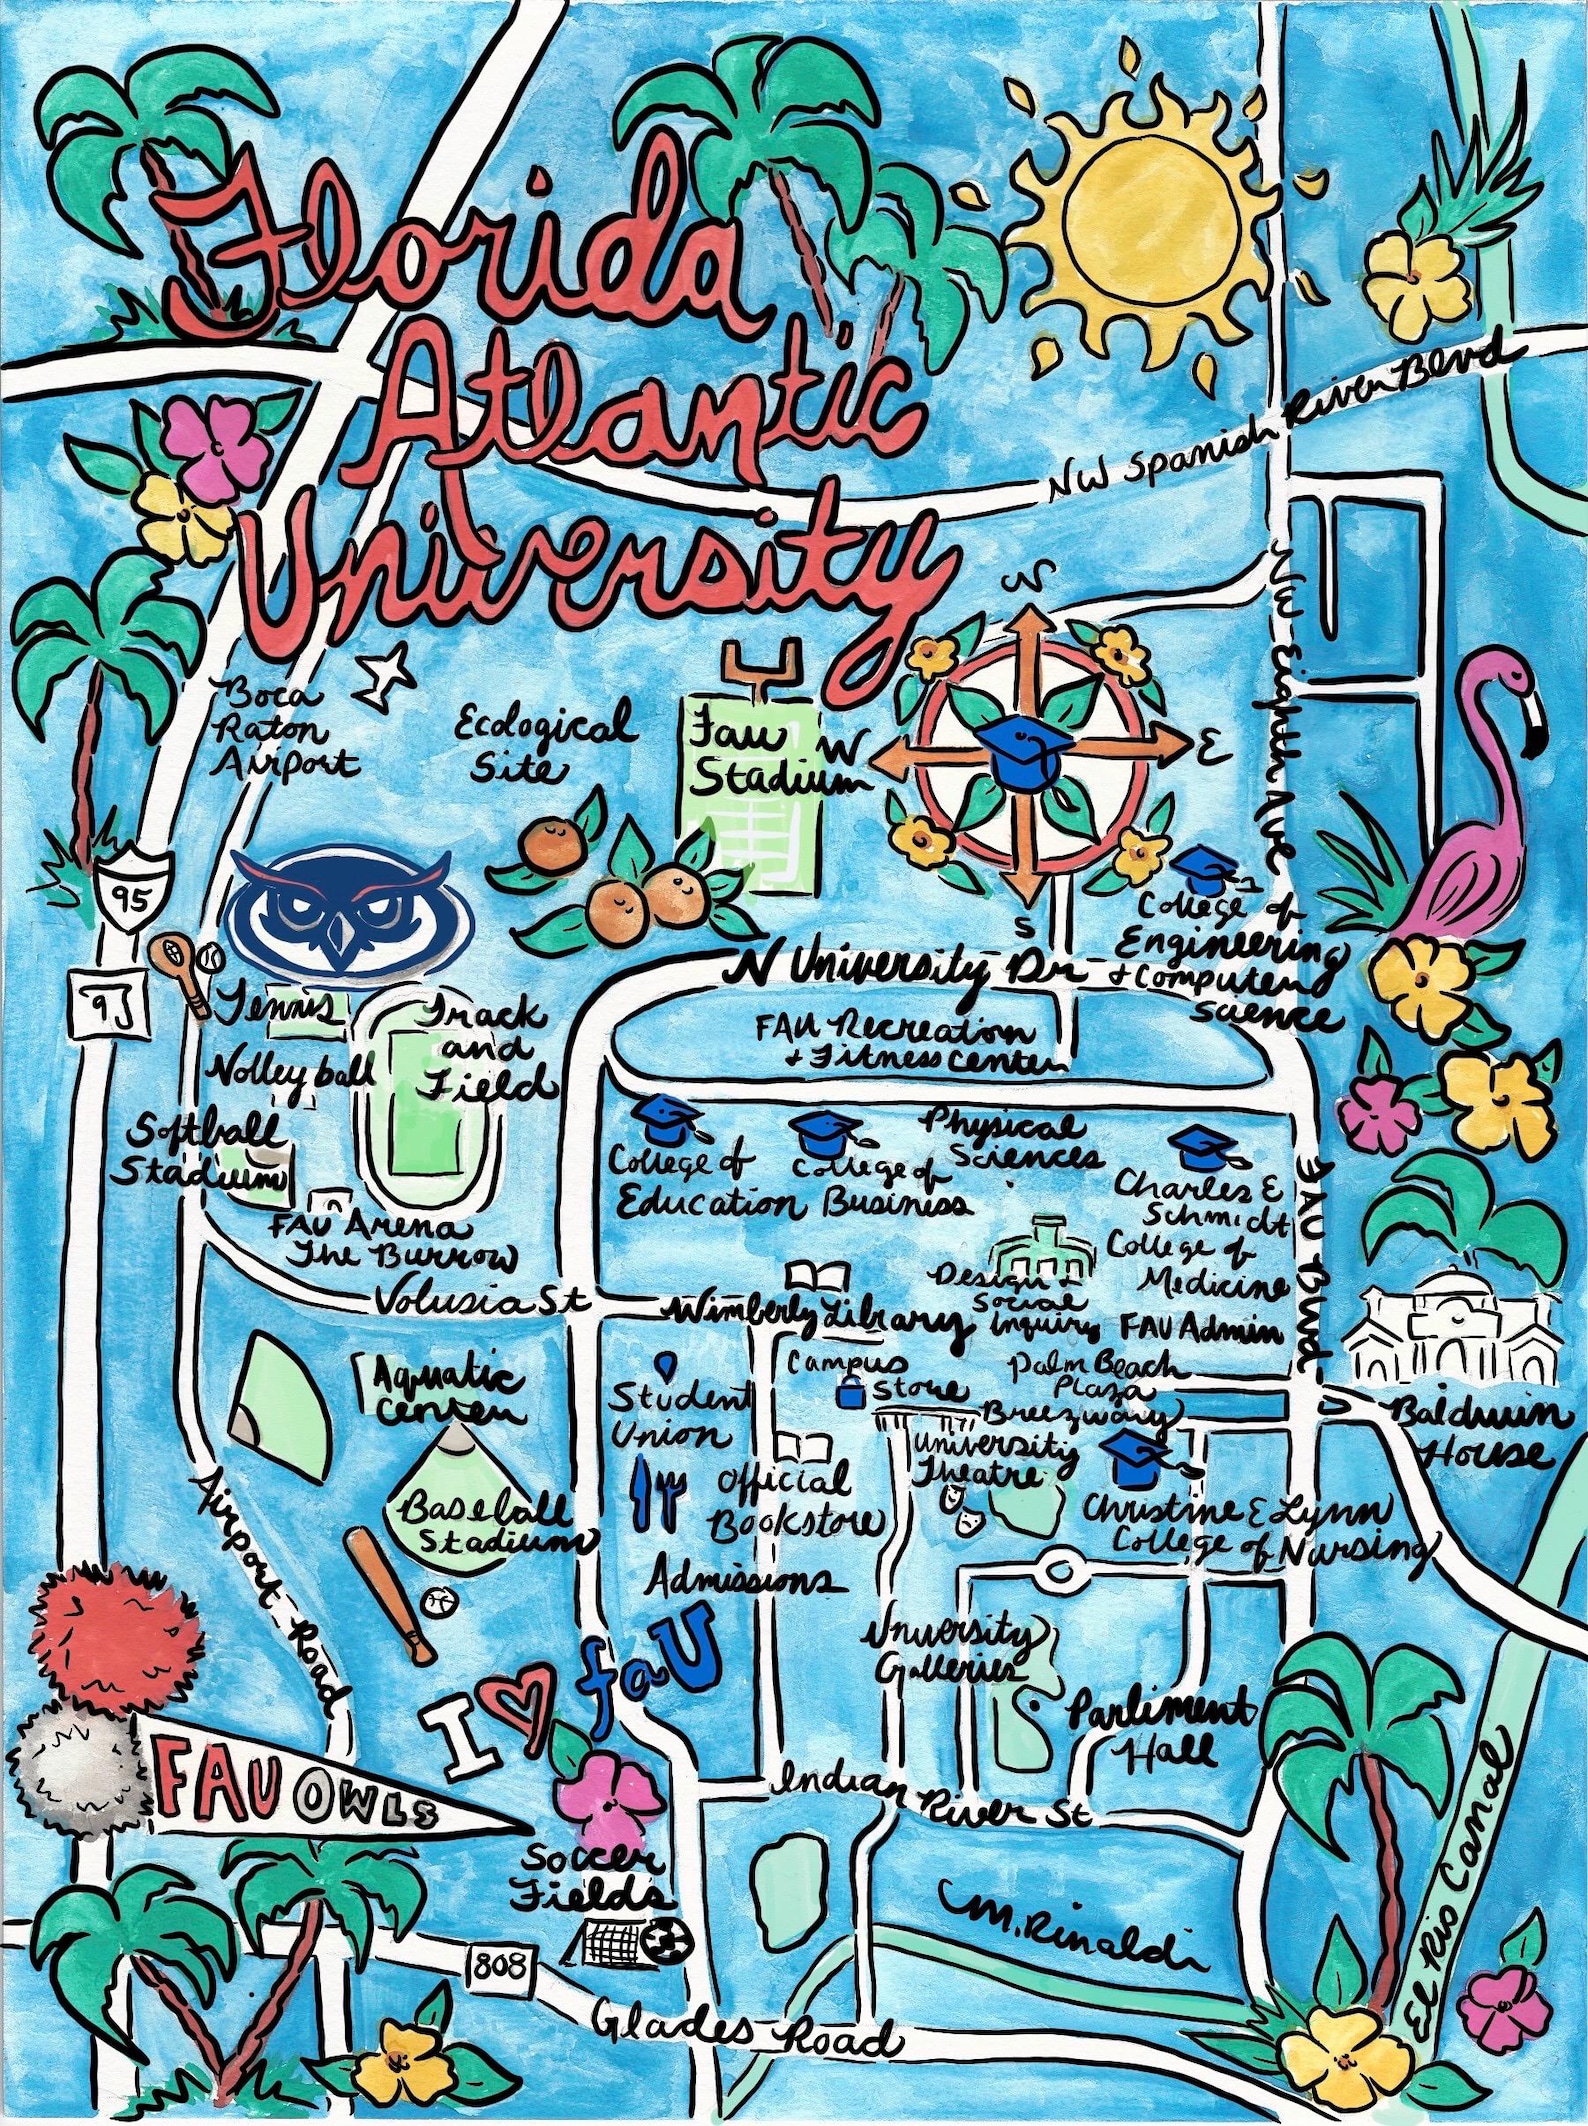 Florida
Atlantic
University
NW Spanish River Blvd
NW Eighth Ave
N
W
E
S
Boca
Raton
Airport
Ecological
Site
Fau
Stadium
95
College of
Engineering
+ Computer
Science
N University Dr
9J
Tennis
Track
and
Field
FAU Recreation
+ Fitness Center
Volleyball
Softball
Stadium
FAU Arena
The Burrow
College of
Education
College of
Business
Physical
Sciences
Charles E
Schmidt
College of
Medicine
FAU Blvd
Volusia St
Wimberly Library
Design +
Social
Inquiry
FAU Admin
Aquatic
Center
Student
Union
Campus
Store
Palm Beach
Plaza
Breezway
Baldwin
House
University
Theatre
Official
Bookstore
Christine E Lynn
College of Nursing
Baseball
Stadium
Airport Road
Admissions
University
Galleries
I faU
Parliment
Hall
FAU OWLS
Indian River St
Soccer
Fields
M. Rinaldi
El Rio Canal
808
Glades Road